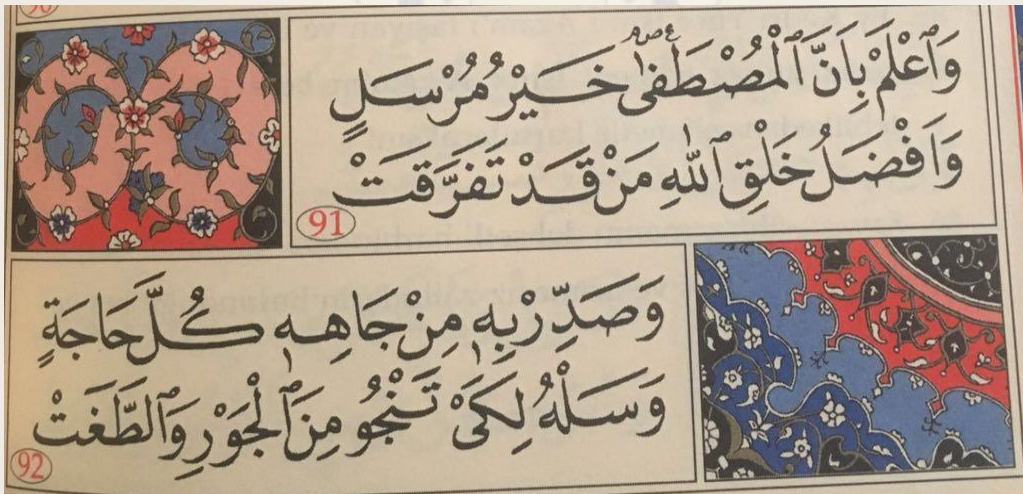 90
وَٱعْلَمْ بِاَنَّ ٱلْمُصْطَفٰى خَيْرُ مُرْسَلٍ
وَاَفْضَلُ خَلْقِ ٱللّٰهِ مَنْ قَدْ تَفَرَّقَتْ
91
وَصَدِّرْ بِهٖ مِنْ جَاهِهٖ كُلَّ حَاجَةٍ
وَسَلْهُ لِكَىْ تَنْجُو مِنَ ٱلْجَوْرِ وَٱلطَّغَتْ
92